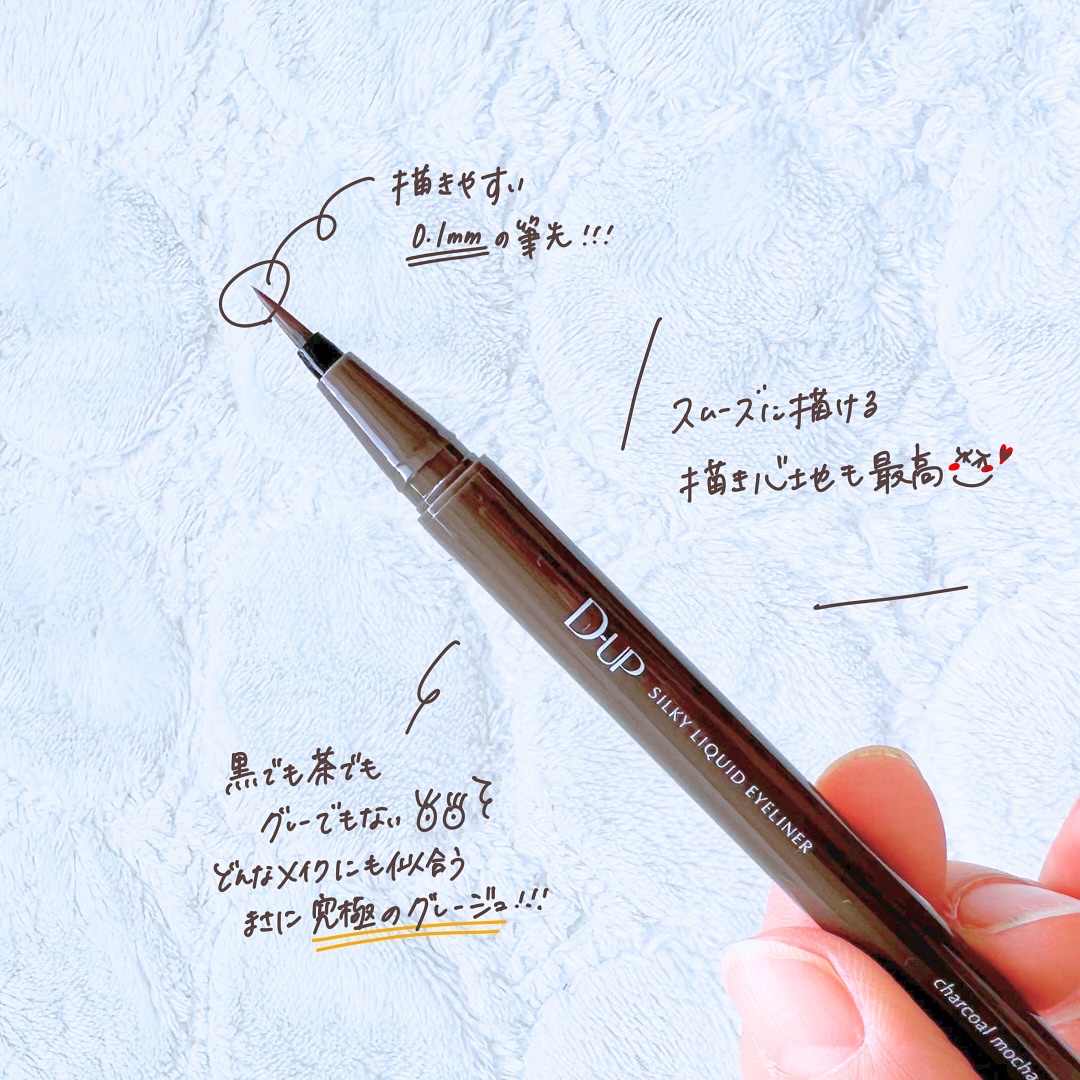 描きやすい
0.1mmの筆先!!!
スムーズに描ける
描き心地も最高
D-UP
SILKY LIQUID EYELINER
黒でも茶でも
グレーでもない
どんなメイクにも似合う
まさに究極のグレージュ!!!
charcoal mocha